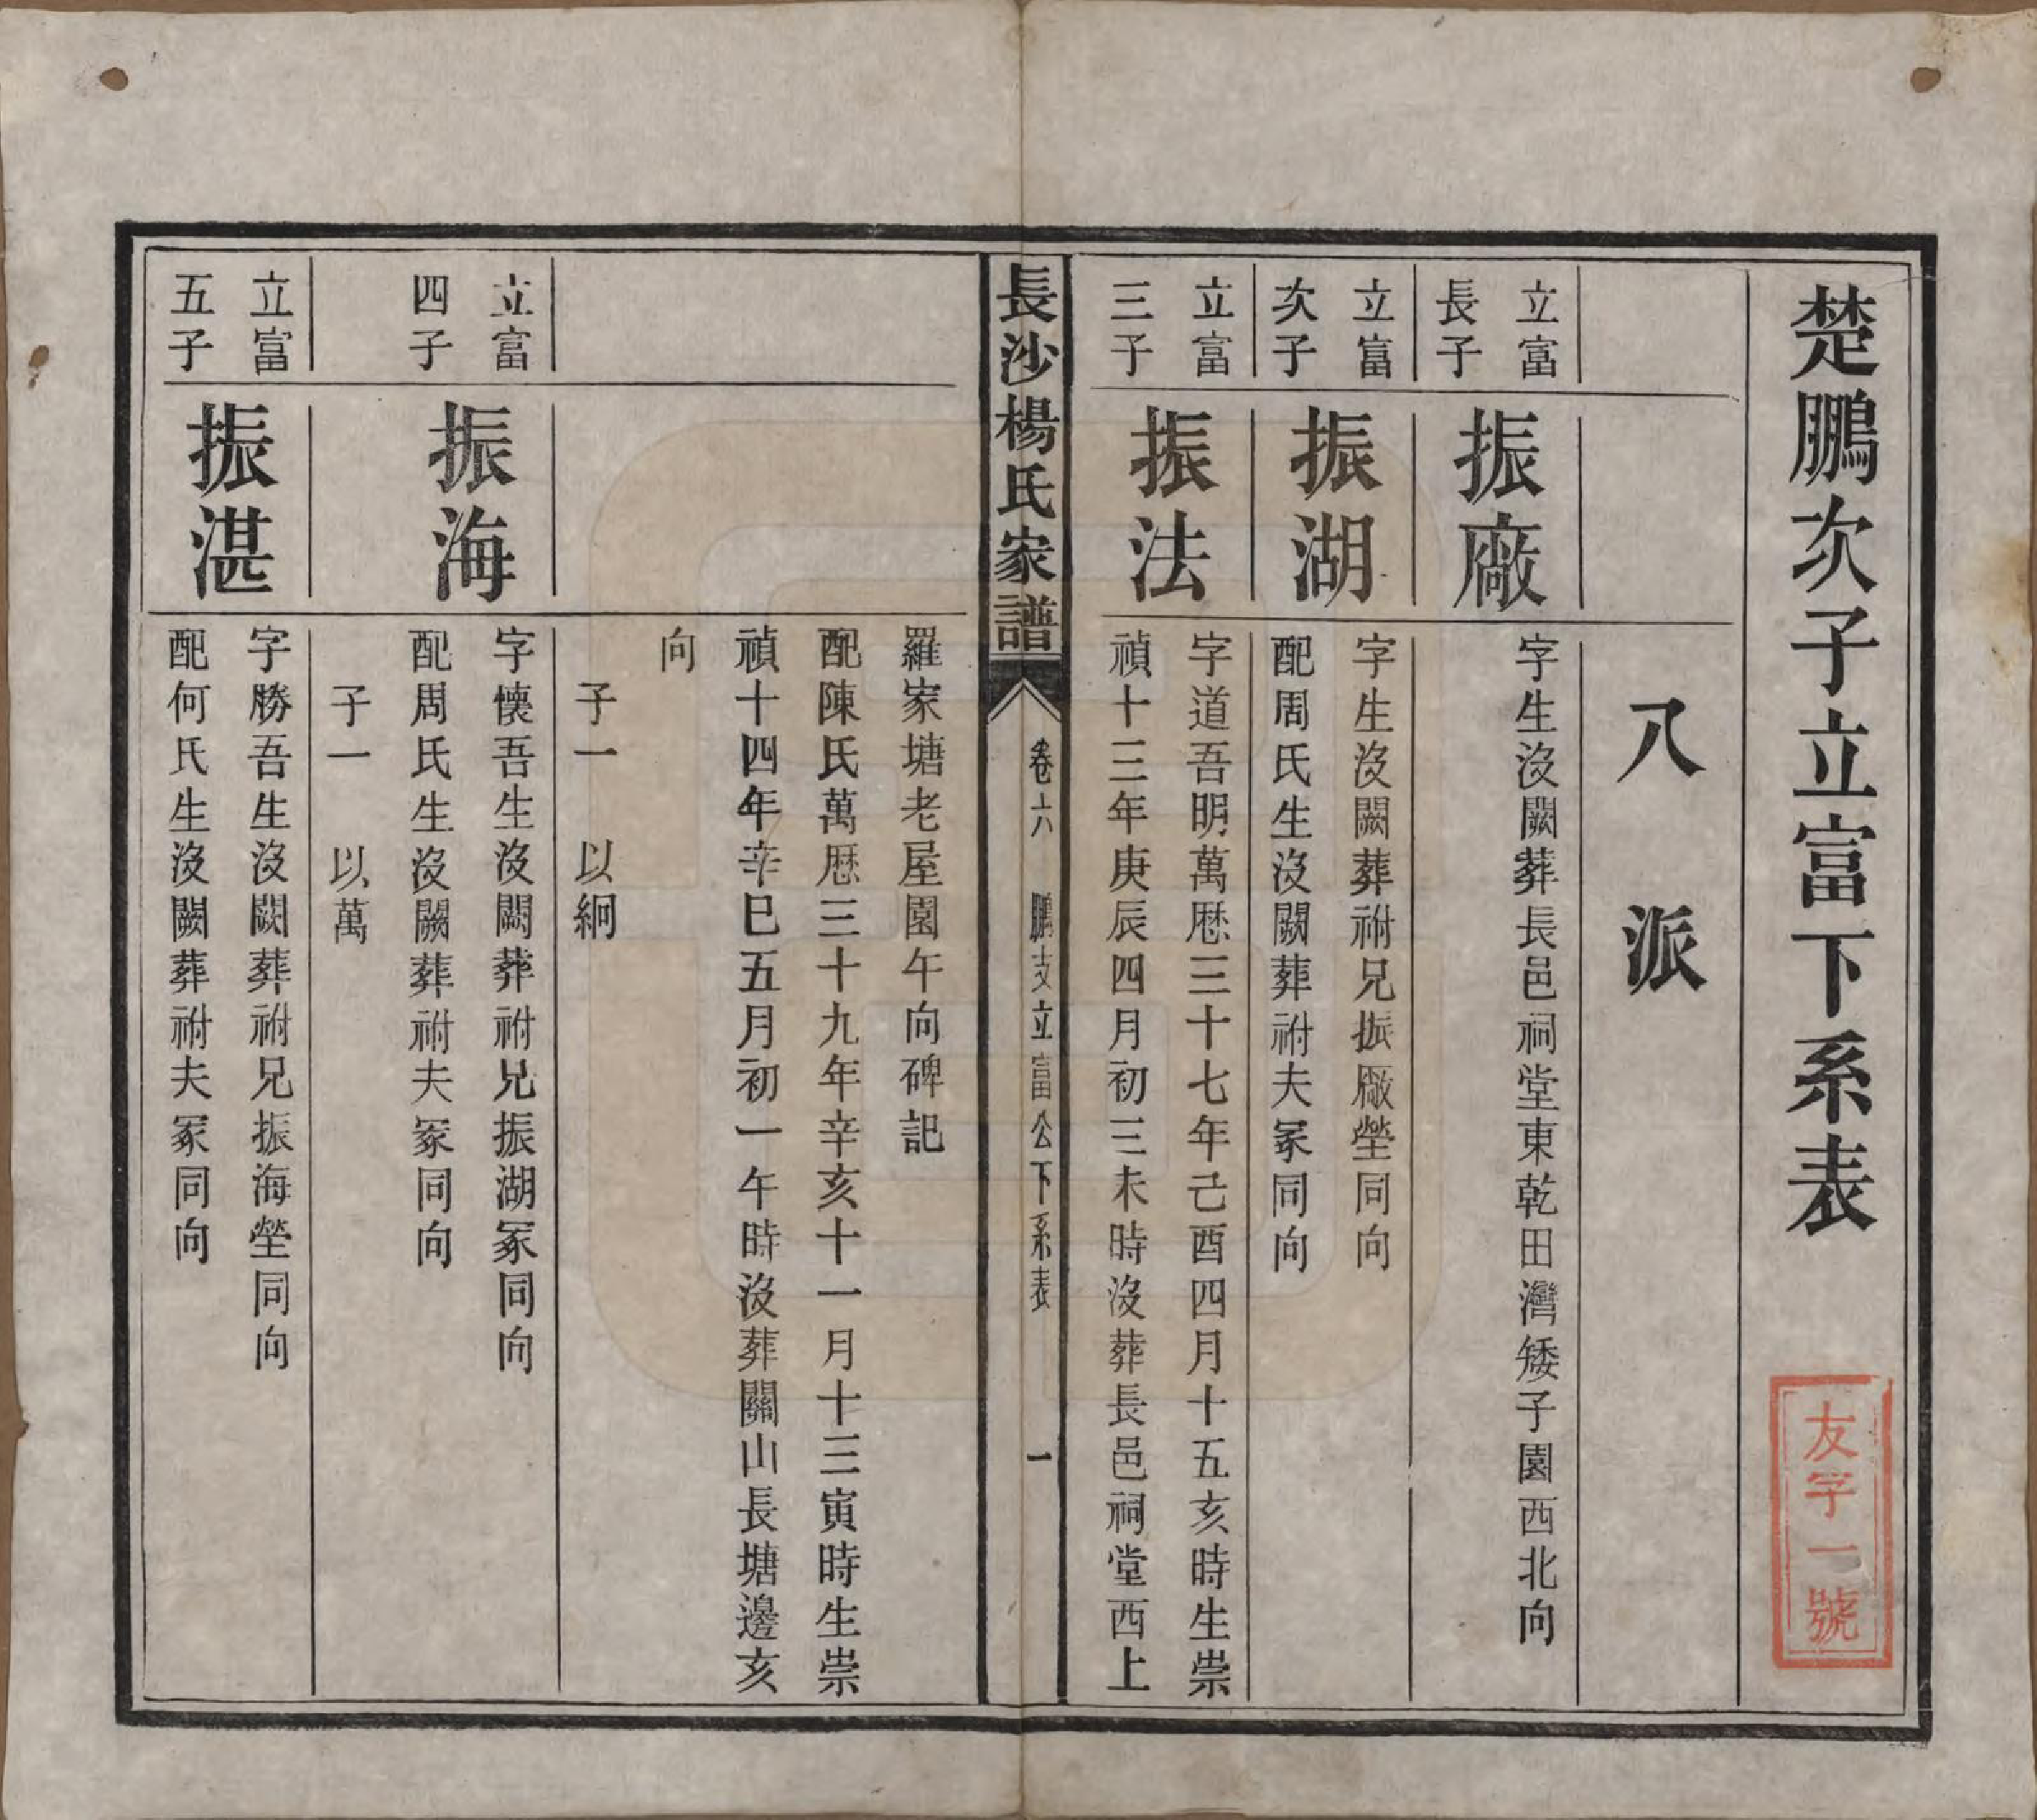 楚鵬次子立富下系表
友字一號
八派
立富
長子
振廠
字生沒闕葬長邑祠堂東乾田灣矮子園西北向
立富
次子
振湖
字生沒闕葬祔兄振廠塋同向
配周氏生沒闕葬祔夫冢同向
立富
三子
振法
字道吾明萬厯三十七年己酉四月十五亥時生崇
禎十三年庚辰四月初三未時沒葬長邑祠堂西上
長沙楊氏家譜
卷六 鵬支立富公下系表
一
羅家塘老屋園午向碑記
配陳氏萬厯三十九年辛亥十一月十三寅時生崇
禎十四年辛巳五月初一午時沒葬關山長塘邊亥
向
子一 以絅
立富
四子
振海
字懷吾生沒闕葬祔兄振湖冢同向
配周氏生沒闕葬祔夫冢同向
子一 以萬
立富
五子
振湛
字勝吾生沒闕葬祔兄振海塋同向
配何氏生沒闕葬祔夫冢同向